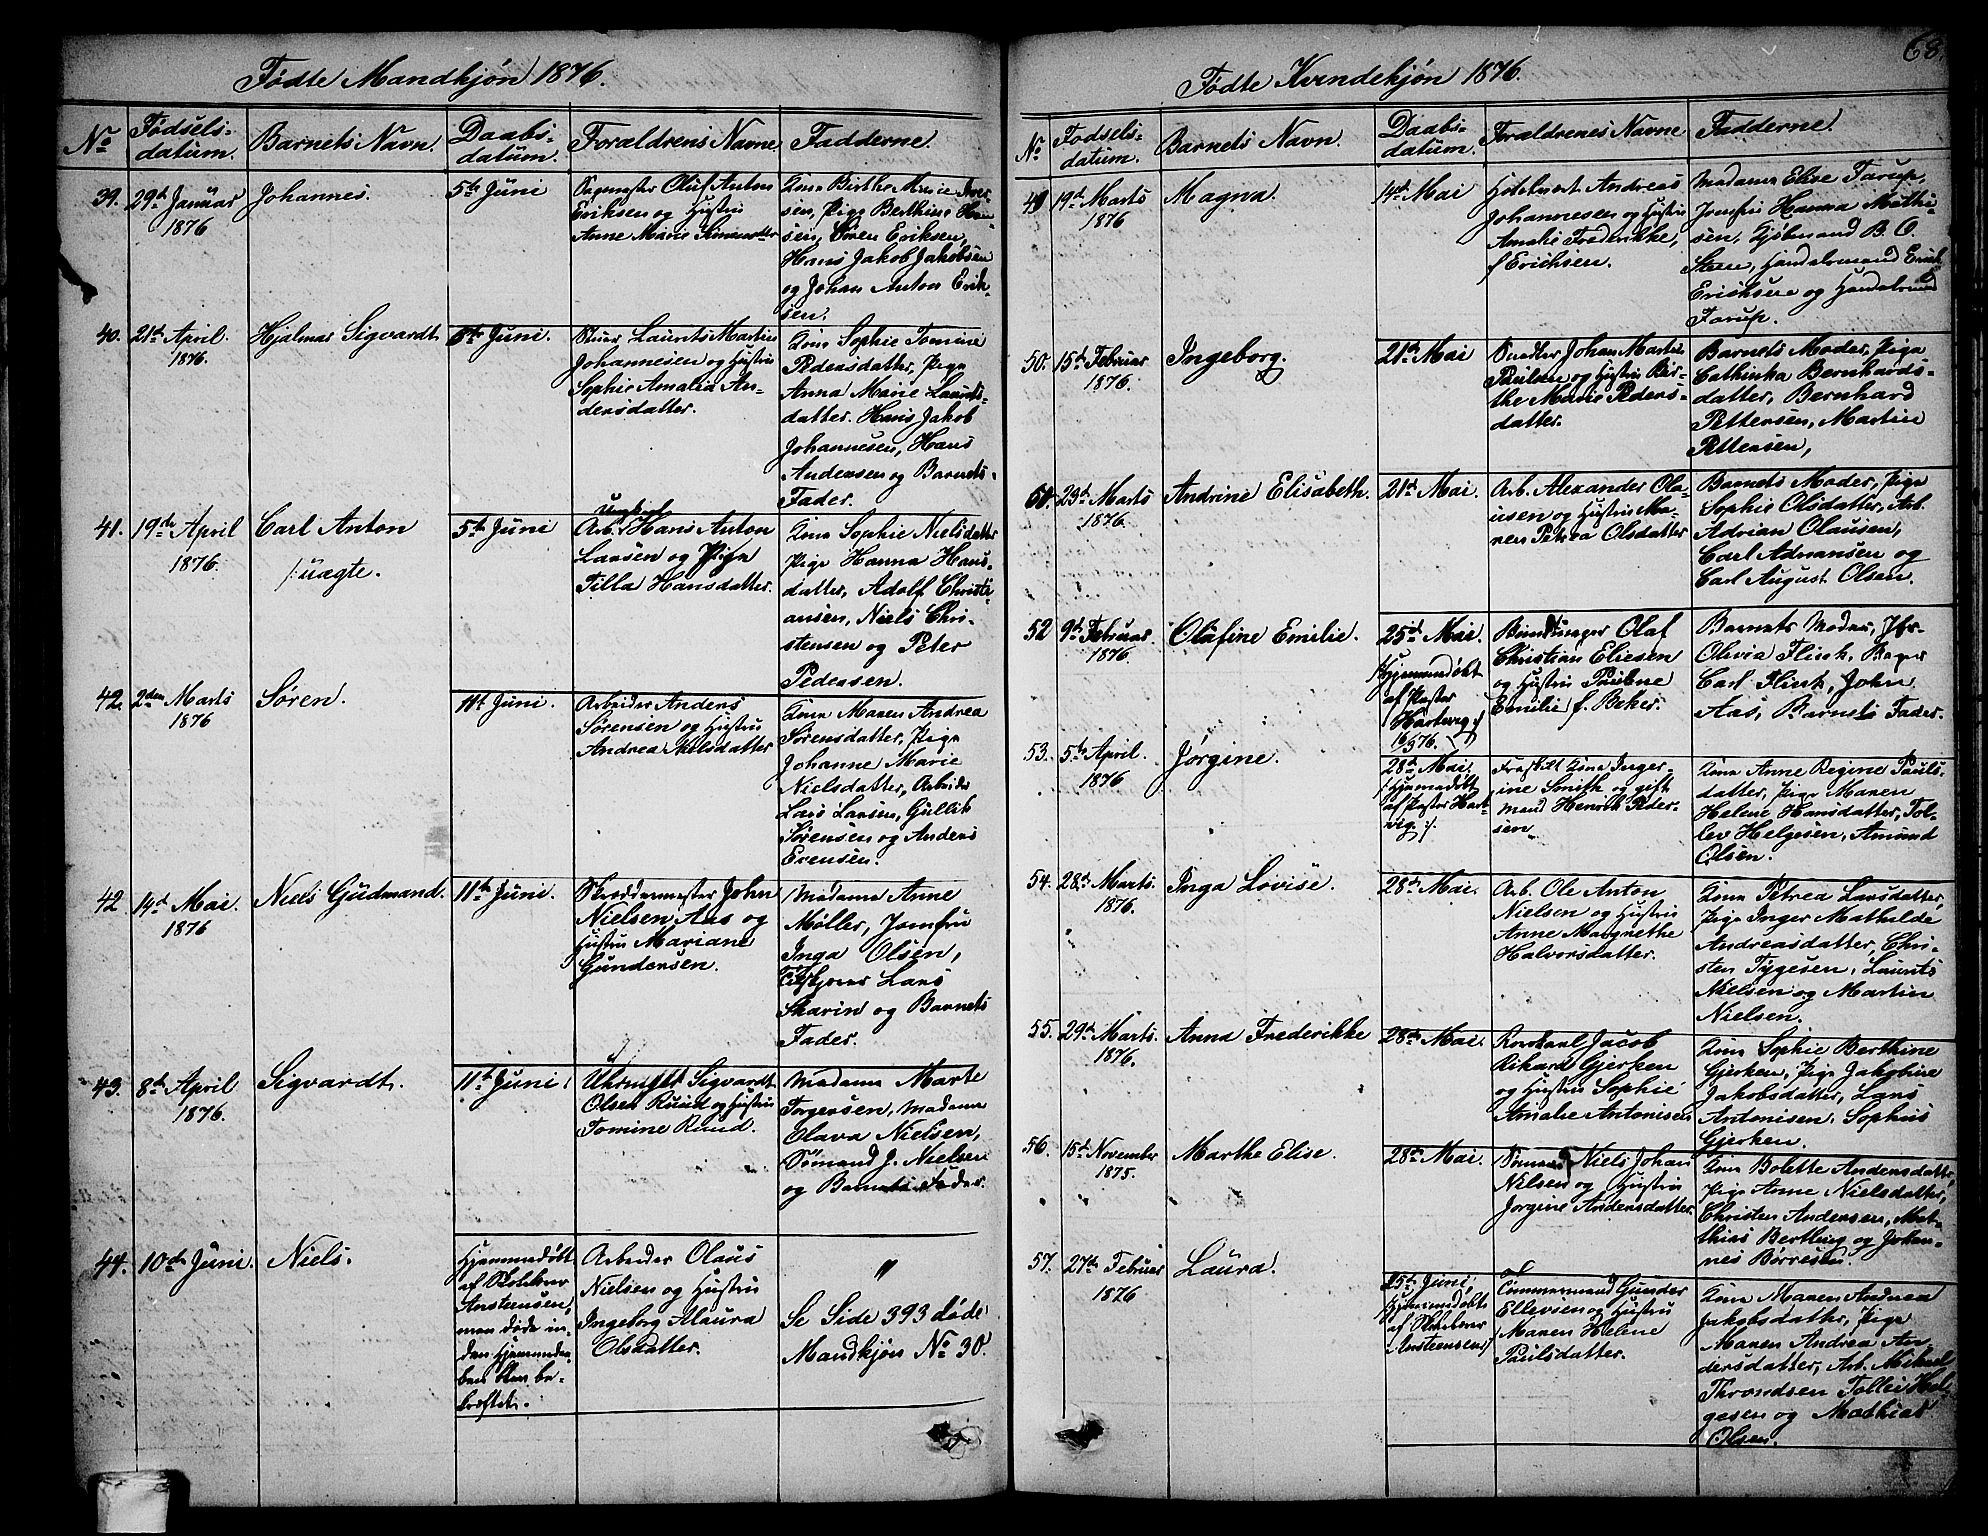 68.
Fødte Mandkjøn 1876.
No
Fødsels-
datum.
Barnets Navn.
Daabs-
datum.
Forældrens Navne
Fadderne.
39. 29de Januar
1876
Johannes.
5te Juni
Olüf Anton
Eriksen og Hustru
Anne Marie
Kone Birthe Marie Iver-
sen, Pige Berthine Han-
sen, Søren Eriksen,
Hans Jakob Jakobsen
og Johan Anton Erik-
sen.
40. 21de April.
1876.
Hjalmar Sigvardt.
5te Juni.
Laurits Martin
Johannesen og Hustru
Sophie Amalia An-
dersdatter.
Kone Sophie Tomine
Pedersdatter, Pige
Anna Marie Laurits-
datter. Hans Jakob
Johannesen, Hans
Andersen og Barnets
Fader.
41. 19de April
1876.
Carl Anton
/: uægte.
5te Juni
Ungkarl
Arb. Hans Anton
Larsen og Pige
Tilla Hansdatter.
Kone Sophie Nielsdatter
Pige Hanna Hans-
datter, Adolf Christi-
ansen, Niels Chri-
stensen og Peter
Pedersen.
42. 2den Marts
1876
Søren.
11te Juni.
Arbeider Anders
Sørensen og Hustru
Andrea Nilsdatter
Kone Maren Andrea
Sørensdatter, Pige
Johanne Marie
Nielsdatter, Arbeider
Lars Larsen, Gullik
Sørensen og Anders
Evensen.
42 14de Mai.
1876
Niels Gudmand.
11te Juni.
Skræddermester John
Nielsen Aas og
Hustru Mariane
Gundersen.
Madame Anne
Møller, Jomfru
Inga Olsen,
Lars
Skarin og Barnets
Fader.
43. 8de April
1876.
Sigvardt.
11te Juni
Uhrmager Sigvardt
Olsen Ruud og Hustru
Tomine Ruud.
Madame Marte
Torgersen, Madame
Olava Nielsen,
Sømand J. Nielsen
og Barnets Fader.
44. 10de Juni.
Niels.
Hjemmedøbt
af Kirkesanger
Ansteensen,
men døde in-
den Hjemmedaa-
ben blev be-
kræftet.
Arbeider Olaus
Nielsen og Hustru
Ingeborg Maura
Olsdatter.
"
Se Side 393 døde
Mandkjøn No 30.
Fødte Kvindekjøn 1876.
No
Fødsels-
datum.
Barnets Navn.
Daabs-
datum.
Forældrenes Navne
Fadderne.
49 19de Marts
1876
Magna.
14de Mai
Hotelvert Andreas
Johannesen og Hustru
Amalie Frederikke,
f Erichsen.
Madame Elise Tarup,
Jomfru Hanna Mathi-
sen, Kjøbmand B. O.
Steen, Handelsmand Erik
Erichsen og Handelsmand
Tarup.
50. 15de Februar
1876.
Ingeborg.
21de Mai
Snedker Johan Martin
Paulsen og Hustru Bir-
the Marie Peders-
datter.
Barnets Moder, Pige
Cathinka Bernhards-
datter, Bernhard
Pettersen, Martin
Pettersen,
51. 23de Marts
1876.
Andrine Elisabeth.
21de Mai.
Arb. Alexander Ola-
usen og Hustru Ma-
ren Petrea Olsdatter
Barnets Moder, Pige
Sophie Olsdatter, Arb.
Adrian Olausen,
Carl Adriansen og
Carl August Olsen.
52 9de Februar
1876.
Olafine Emilie.
25de Mai.
/: Hjemmedøbt
af Pastor
Hartvig
16/3 76. :/
Bundtmager Olaf
Christian Eliesen
og Hustru Pauline
Emilie f. Beker.
Barnets Moder, Jfr.
Olivia Flink, Bager
Carl Flink, John
Aas, Barnets Fader.
53. 5te April.
1876
Jørgine.
28de Mai.
/: Hjemmedøbt
af Pastor Hart-
vig :/.
Fraskilt Kone Inger-
ine Smith og gift
mand Henrik Peder-
sen
Kone Anne Regine Pauls-
datter, Pige Maren
Helene Hansdatter, Tol-
lev Helgesen, Amund
Olsen.
54. 28de Marts.
1876.
Inga Lovise.
28de Mai.
Arb. Ole Anton
Nielsen og Hustru
Anne Margrethe
Halvorsdatter.
Kone Petrea Larsdatter,
Pige Inger Mathilde
Andreasdatter, Chri-
sten Tygesen, Laurits
Nielsen og Martin
Nielsen.
55. 29de Marts.
1876.
Anna Frederikke
28de Mai.
Jacob
Rikard Gjerken
og Hustru Sophie
Amalie Antonisen
Kone Sophie Berthine
Gjerken, Pige Jakobine
Jakobsdatter, Lars
Antonisen. Sophus
Gjerken.
56. 15de November
1875.
Marthe Elise.
28de Mai.
Sømand Niels Johan
Nilsen og Hustru
Jørgine Andersdatter.
Kone Bolette Andersdatter
Pige Anne Nielsdatter,
Christen Andersen, Mat-
thias Bertling og Johan-
nes Børresen.
57. 27de Februar
1876
Laura.
25de Juni.
Hjemmedøbt
af Kirkesanger
Ansteensen :/
Tømmermand Gunder
Ellevsen og Hustru
Maren Helene
Paulsdatter.
Kone Maren Andrea
Jakobsdatter, Pige
Maren Andrea An-
dersdatter, Arb. Mikael
Throndsen Tollef Hel-
gesen og Mathias
Olsen.